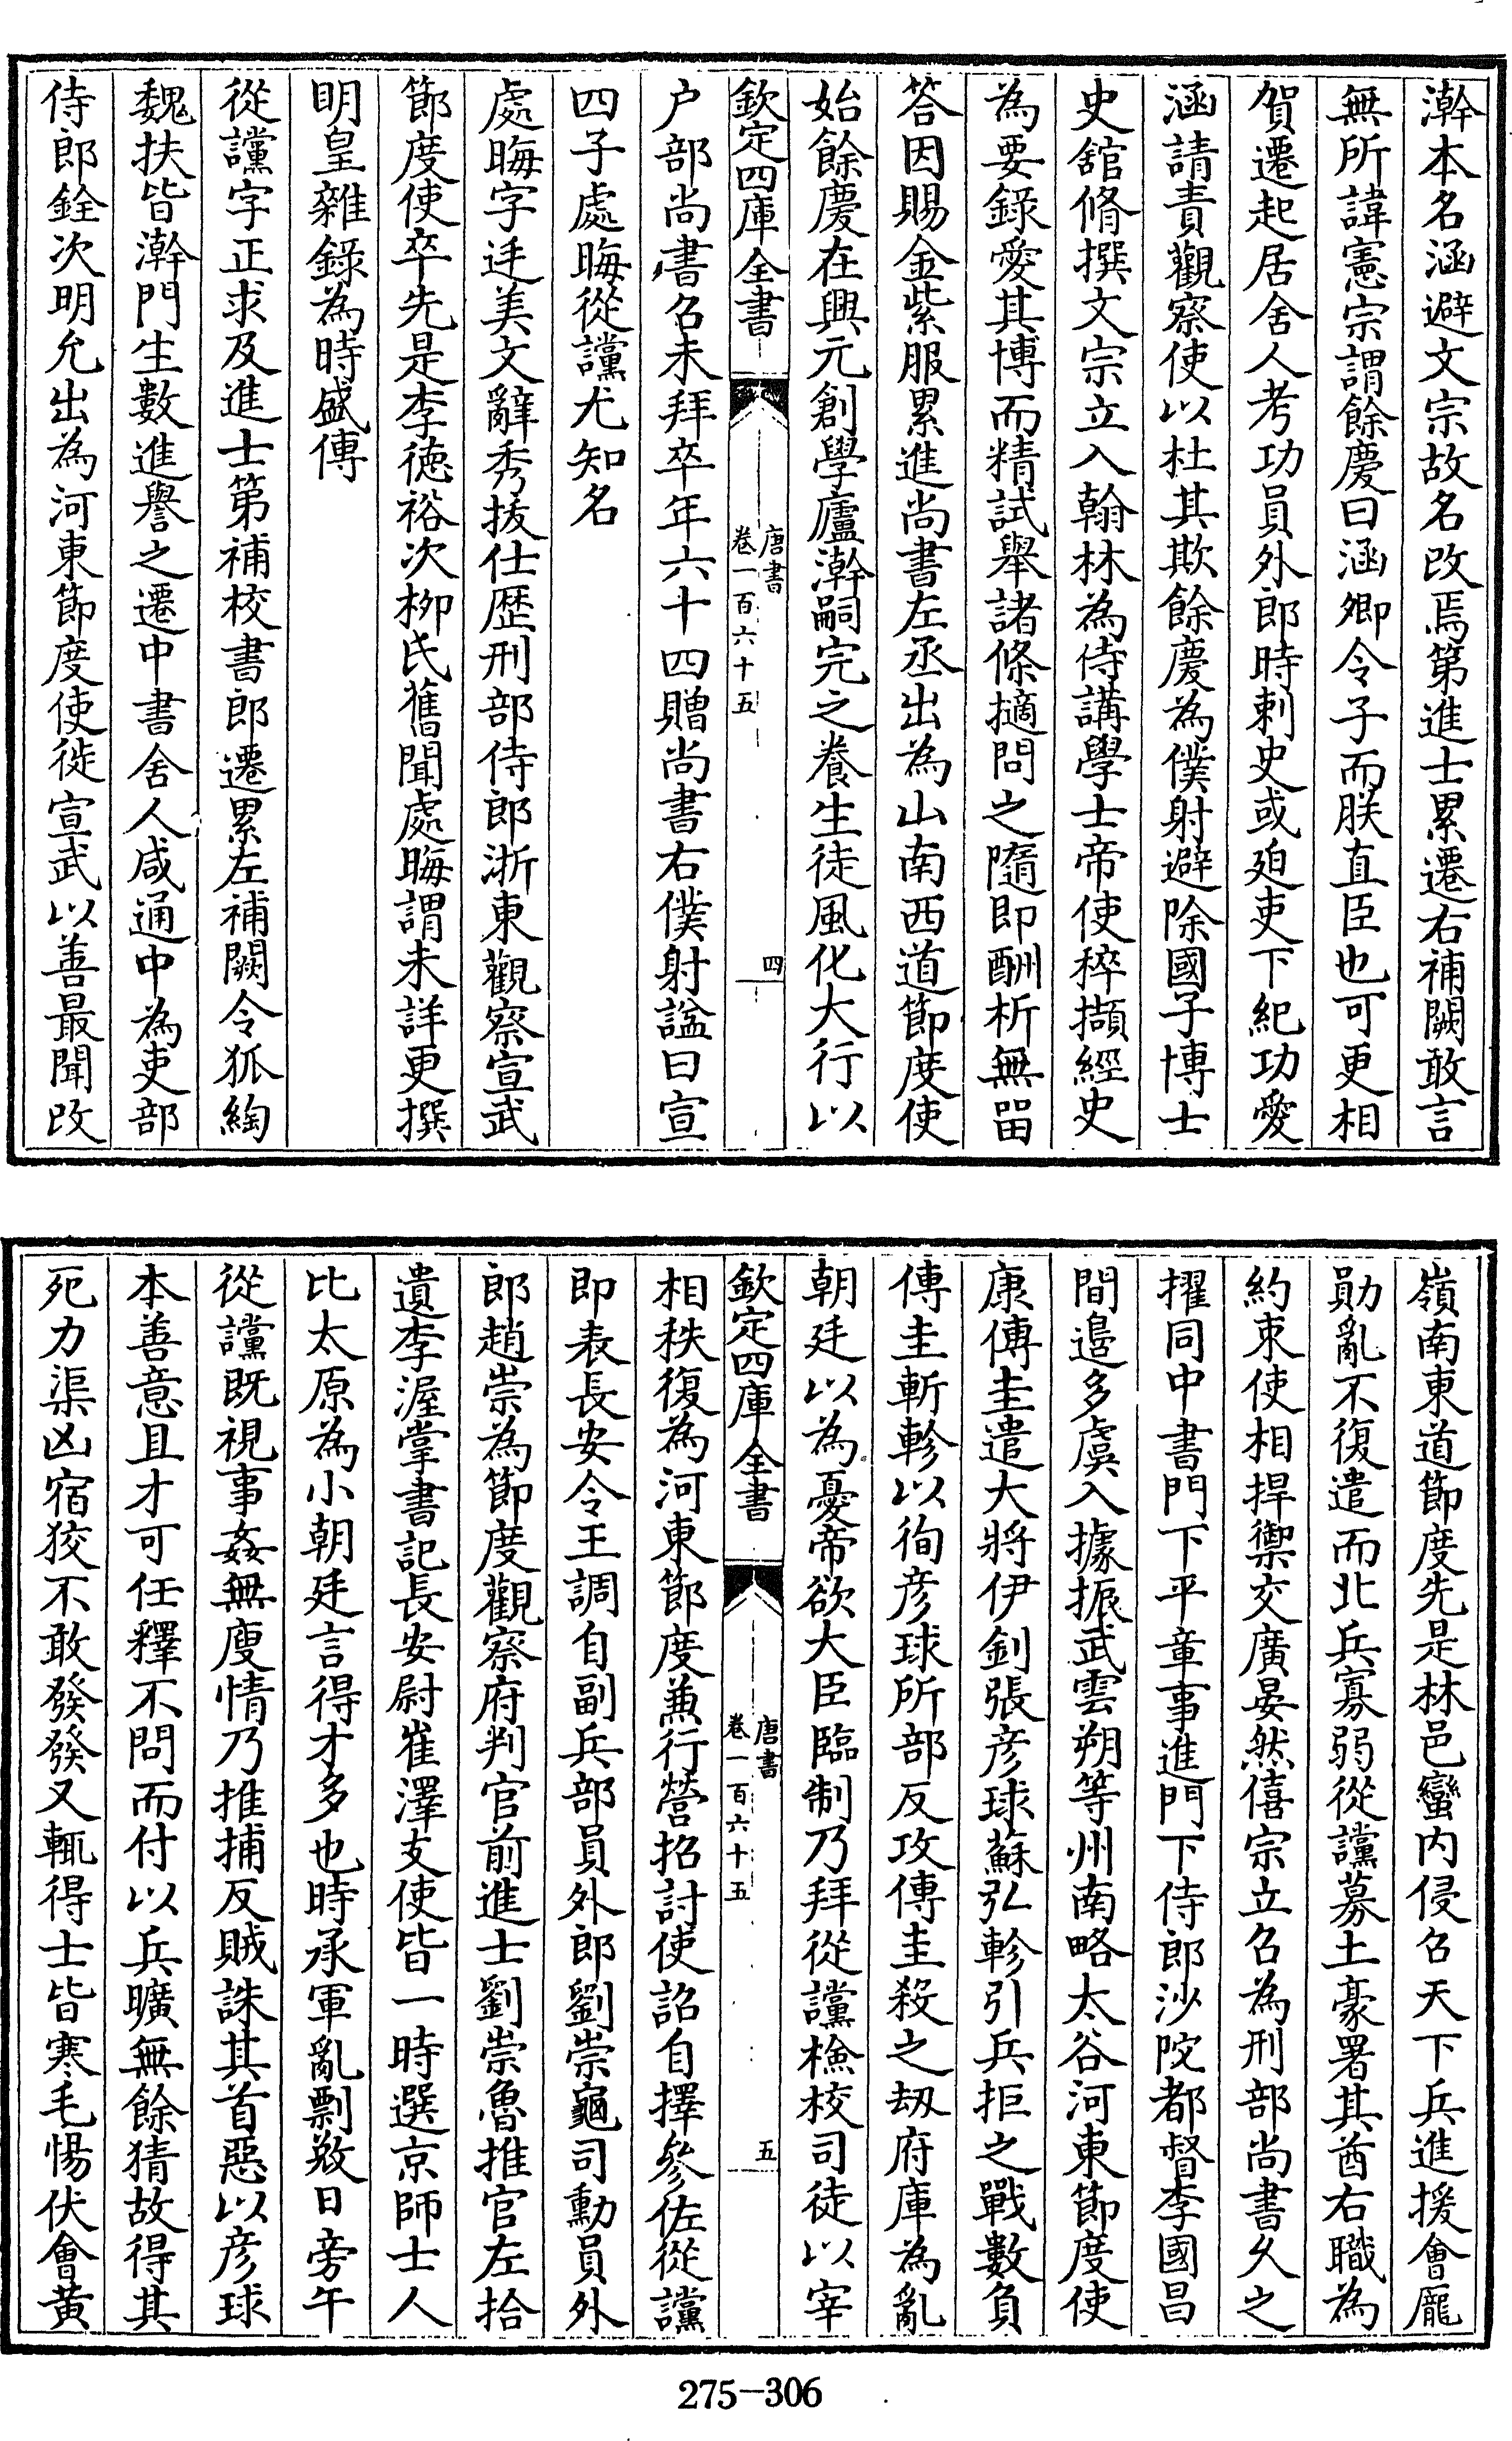 瀚本名涵避文宗故名改焉第進士累遷右補闕敢言
無所諱憲宗謂餘慶曰涵卿令子而朕直臣也可更相
賀遷起居舍人考功員外郎時刺史或廹吏下紀功愛
涵請責觀察使以杜其欺餘慶為僕射避除國子博士
史舘脩撰文宗立入翰林為侍講學士帝使稡擷經史
為要錄愛其博而精試舉諸條擿問之隨即酬析無畱
答因賜金紫服累進尚書左丞出為山南西道節度使
始餘慶在興元創學廬瀚嗣完之養生徒風化大行以
欽定四庫全書
唐書
卷一百六十五
四
户部尚書召未拜卒年六十四贈尚書右僕射諡曰宣
四子處晦從讜尤知名
處晦字廷美文辭秀拔仕歴刑部侍郎浙東觀察宣武
節度使卒先是李徳裕次柳氏舊聞處晦謂未詳更撰
明皇雜錄為時盛傳
從讜字正求及進士第補校書郎遷累左補闕令狐綯
魏扶皆瀚門生數進譽之遷中書舍人咸通中為吏部
侍郎銓次明允出為河東節度使徙宣武以善最聞改
嶺南東道節度先是林邑蠻内侵召天下兵進援會龐
勛亂不復遣而北兵寡弱從讜募土豪署其酋右職為
約束使相捍禦交廣晏然僖宗立召為刑部尚書久之
擢同中書門下平章事進門下侍郎沙陀都督李國昌
間邉多虞入據振武雲朔等州南略太谷河東節度使
康傳圭遣大將伊釗張彦球蘇弘軫引兵拒之戰數負
傳圭斬軫以徇彦球所部反攻傳圭殺之刼府庫為亂
朝廷以為憂帝欲大臣臨制乃拜從讜檢校司徒以宰
欽定四庫全書
唐書
卷一百六十五
五
相秩復為河東節度兼行營招討使詔自擇參佐從讜
即表長安令王調自副兵部員外郎劉崇龜司勳員外
郎趙崇為節度觀察府判官前進士劉崇魯推官左拾
遺李渥掌書記長安尉崔澤支使皆一時選京師士人
比太原為小朝廷言得才多也時承軍亂剽敚日旁午
從讜既視事姦無廋情乃推捕反賊誅其首惡以彦球
本善意且才可任釋不問而付以兵曠無餘猜故得其
死力渠凶宿狡不敢發發又輒得士皆寒毛惕伏會黄
275-306